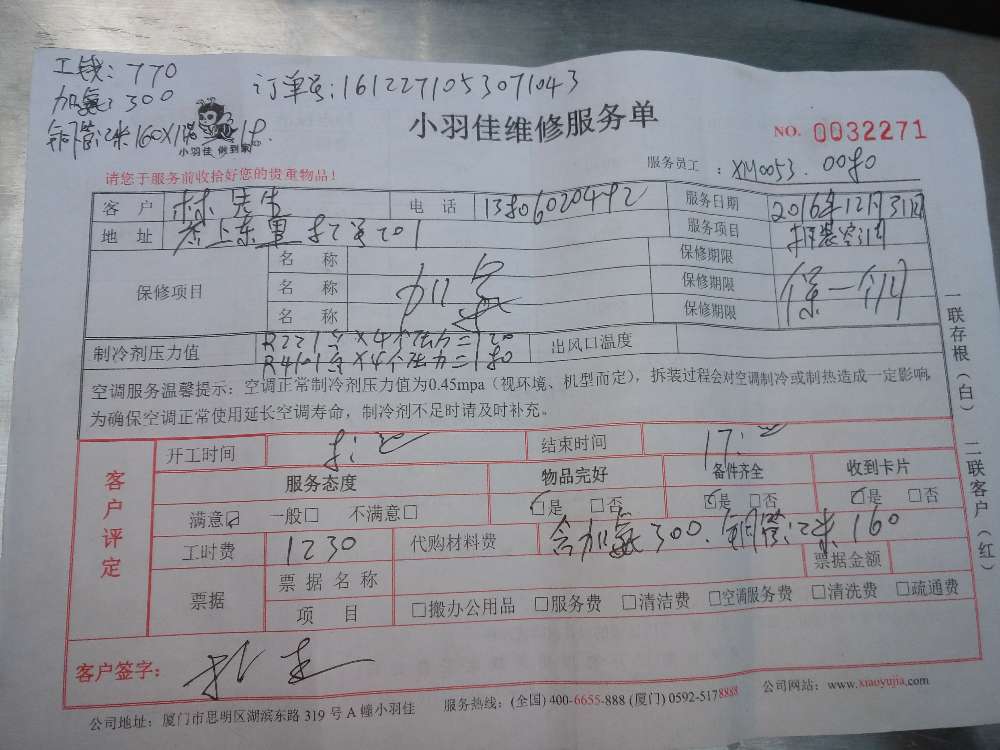 工钱：770
订单号：1612271053071043
加氟：300
铜管：2米160X1
小羽佳 做到家
小羽佳维修服务单
NO. 0032271
请您于服务前收拾好您的贵重物品！
服务员工：XM0053.0080
客户 林先生 电话 服务日期 2016年12月31日
地址 服务项目 拆装空调
保修项目 名称 保修期限
名称 加氟 保修期限 保一个月
名称 保修期限
制冷剂压力值 R22 1台X4个压力=120 出风口温度
R410 1台X4个压力=180
空调服务温馨提示：空调正常制冷剂压力值为0.45mpa（视环境、机型而定），拆装过程会对空调制冷或制热造成一定影响，
为确保空调正常使用延长空调寿命，制冷剂不足时请及时补充。
客户评定
开工时间 结束时间 17:
服务态度 物品完好 备件齐全 收到卡片
满意☑ 一般□ 不满意□ ☑是 □否 ☑是 □否 ☑是 □否
工时费 1230 代购材料费 含加氟300.铜管2米160
票据 票据名称 票据金额
项目 □搬办公用品 □服务费 □清洁费 □空调服务费 □清洗费 □疏通费
客户签字：
公司地址：厦门市思明区湖滨东路 319 号 A 幢小羽佳 服务热线：(全国) 400-6655-888 (厦门) 0592-5178888 公司网站：www.xiaoyujia.com
一联存根（白） 二联客户（红）